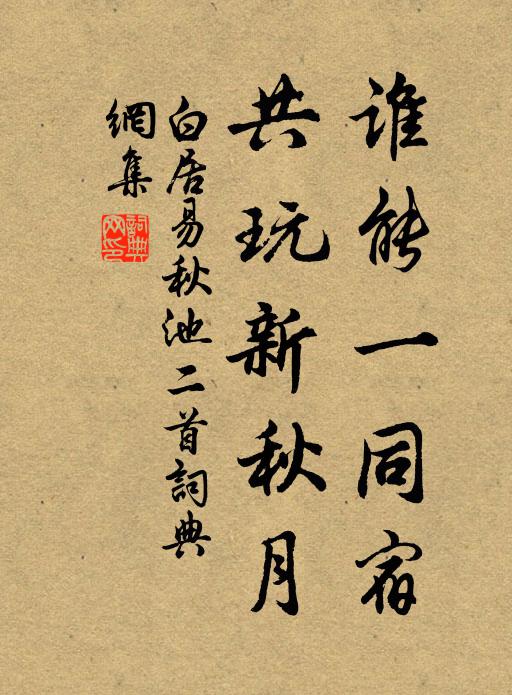 誰能一同宿
共玩新秋月
白居易秋池二首詞典
網集
詞典
网印